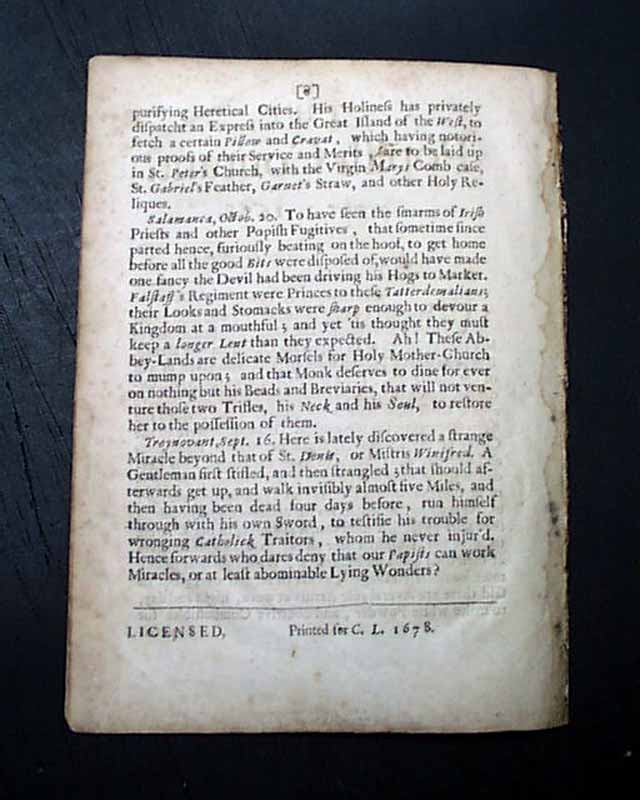 [8]
purifying Heretical Cities. His Holineſs has privately
diſpatcht an Expreſs into the Great Iſland of the Weſt, to
fetch a certain Pillow and Cravat, which having notori-
ous proofs of their Service and Merits, are to be laid up
in St. Peter's Church, with the Virgin Marys Comb caſe,
St. Gabriel's Feather, Garnet's Straw, and other Holy Re-
liques.
Salamanca, Octob. 20. To have ſeen the ſwarms of Iriſh
Prieſts and other Popiſh Fugitives, that ſometime ſince
parted hence, furiouſly beating on the hoof, to get home
before all the good Bits were diſpoſed of, would have made
one fancy the Devil had been driving his Hogs to Market.
Falſtaff's Regiment were Princes to theſe Tatterdemalians;
their Looks and Stomacks were ſharp enough to devour a
Kingdom at a mouthful; and yet 'tis thought they muſt
keep a longer Lent than they expected. Ah! Theſe Ab-
bey-Lands are delicate Morſels for Holy Mother-Church
to mump upon; and that Monk deſerves to dine for ever
on nothing but his Beads and Breviaries, that will not ven-
ture thoſe two Trifles, his Neck and his Soul, to reſtore
her to the poſſeſſion of them.
Troynovant, Sept. 16. Here is lately diſcovered a ſtrange
Miracle beyond that of St. Denis, or Miſtris Winifred. A
Gentleman firſt ſtifled, and then ſtrangled; that ſhould af-
terwards get up, and walk inviſibly almoſt five Miles, and
then having been dead four days before, run himſelf
through with his own Sword, to teſtifie his trouble for
wronging Catholick Traitors, whom he never injur'd.
Henceforwards who dares deny that our Papiſts can work
Miracles, or at leaſt abominable Lying Wonders?
LICENSED, Printed for C. L. 1678.